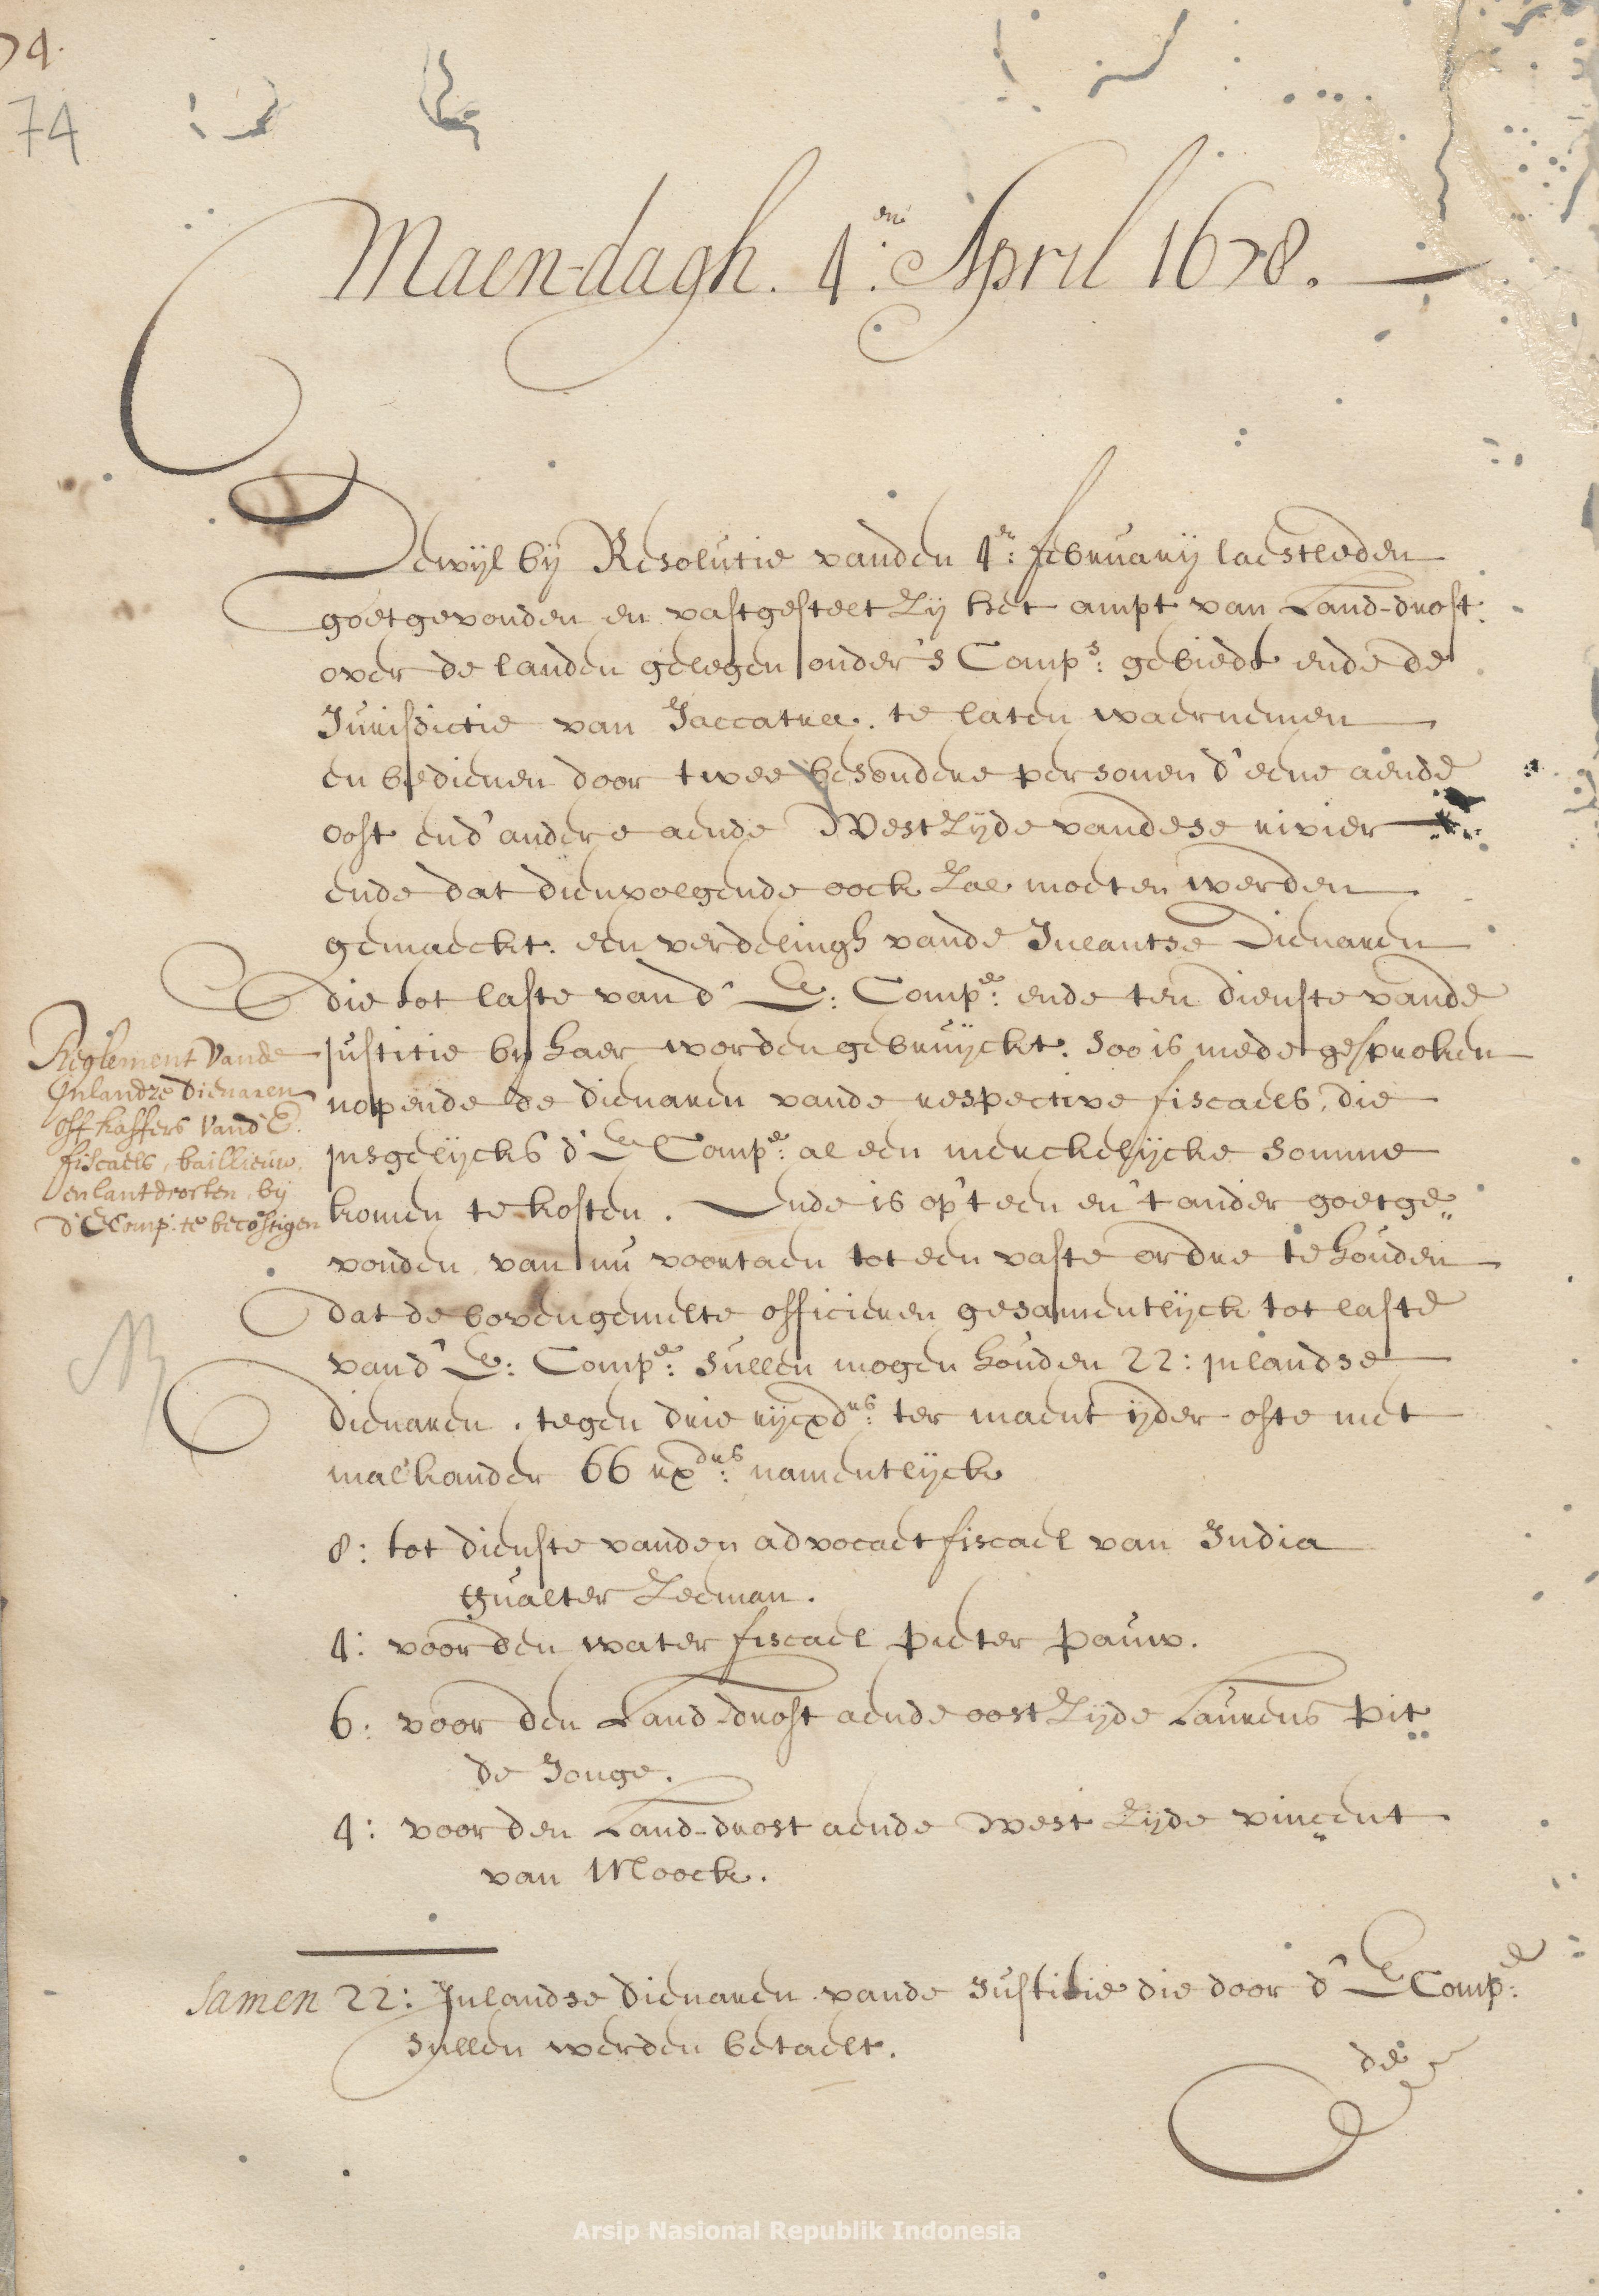 74.
74
Maendagh. 4.en April 1678.
Dewijl bij Resolutie vanden 4:en february laestleden
goetgevonden en vastgestelt zy het ampt van Land-drost
over de landen gelegen onder 's Comp:s gebiedt ende de
Jurisdictie van Jaccatra. te laten waernemen
en bedienen door twee besondere personen d'eene aende
oost end' andere aende West zyde vandese rivier
ende dat dienvolgende oock zal moeten werden
gemaeckt. een verdelingh vande Inlantse Dienaren
die tot laste van d' E: Comp:e ende ten dienste vande
justitie by haer worden gebruijckt. Soo is mede gesproken
nopende de dienaren vande respective fiscaels, die
insgelijcks d' E Comp:e al een merckelijcke somme
komen te kosten. Ende is op 't een en 't ander goetge„
vonden van nu voortaen tot een vaste ordre te houden
dat de bovengemelte officieren gesamentlijck tot laste
van d' E: Comp:e sullen mogen houden 22: inlandse
dienaren. tegen drie rijcxd:rs ter maent ijder ofte met
malkander 66 rx:drs namentlijck
Reglement vande
Inlandze dienaren
off kaffers vand' E.
fiscaels, baillieuw,
en lantdrosten, bij
d' E Comp:e te becostigen
8: tot dienste vanden advocaet fiscael van India
Gualter Zeeman.
4: voor den water fiscael pieter pauw.
6: voor den Land-drost aende oost zyde Laurens pit
de Jonge.
4: voor den Land-drost aende West zyde vincent
van Moock.
Samen 22: Inlandse dienaren vande Justitie die door d' E Comp:e
sullen werden betaelt.
de
Arsip Nasional Republik Indonesia